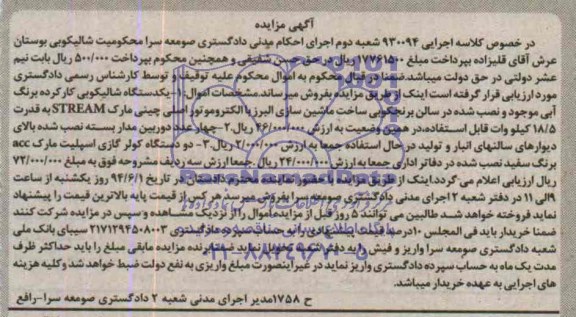 آگهی مزایده
در خصوص کلاسه اجرایی ۹۳۰۰۹۴ شعبه دوم اجرای احکام مدنی دادگستری صومعه سرا محکومیت شالیکوبی بوستان
عرش آقای قلیزاده بپرداخت مبلغ ۱۷۷۶۱۵۰۰ ریال در حق حسن شفیقی و همچنین محکوم بپرداخت ۵۰۰/۰۰۰ ریال بابت نیم
عشر دولتی در حق دولت میباشد.ضمنا در قبال محکوم به اموال محکوم علیه توقیف و توسط کارشناس رسمی دادگستری
مورد ارزیابی قرار گرفته است اینک از طریق مزایده بفروش میرساند.مشخصات اموال:۱-یکدستگاه شالیکوبی کارکرده برنگ
آبی موجود و نصب شده در سالن برنجکوبی ساخت ماشین سازی البرز با الکتروموتور اصلی چینی مارک STREAM به قدرت
۱۸/۵ کیلو وات قابل استفاده،در همین وضعیت به ارزش ۴۶/۰۰۰/۰۰۰ ریال.۲-چهار عدد دوربین مدار بسته نصب شده بالای
دیوارهای سالنهای انبار و تولید در حال استفاده جمعا به ارزش ۲/۰۰۰/۰۰۰ ریال.۳- دو دستگاه کولر گازی اسپلیت مارک acc
برنگ سفید نصب شده در دفاتر اداری جمعا به ارزش ۲۴/۰۰۰/۰۰۰ ریال.جمعا ارزش سه ردیف مشروحه فوق به مبلغ ۷۲/۰۰۰/۰۰۰
ریال ارزیابی اعلام می گردد.اینک از طریق مزایده با حضور نماینده محترم دادستان در تاریخ ۹۴/۶/۱ روز یکشنبه از ساعت
۹الی ۱۱ در دفتر شعبه ۲ اجرای مدنی دادگستری صومعه سرا بفروش میرسد.هر کس از قیمت پایه بالاترین قیمت را پیشنهاد
نماید فروخته خواهد شد.طالبین می توانند ۵ روز قبل از مزایده اموال را از نزدیک مشاهده و سپس در مزایده شرکت کنند
ضمنا فی المجلس ۱۰درصد قیمت ۲۱۷۱۲۹۴۵۰۸۰۰۳ سیبای بانک ملی
شعبه دادگستری صومعه سرا واریز و فیش را به دفتر شعبه تحویل نماید ضمنا برنده مزایده مابقی مبلغ را باید حداکثر ظرف
مدت یک ماه به حساب سپرده دادگستری واریز نماید در غیراینصورت مبلغ واریزی به نفع دولت ضبط خواهد شد وکلیه هزینه
های اجرایی به عهده خریدار میباشد.
ح ۱۷۵۸مدیر اجرای مدنی شعبه ۲ دادگستری صومعه سرا-رافع